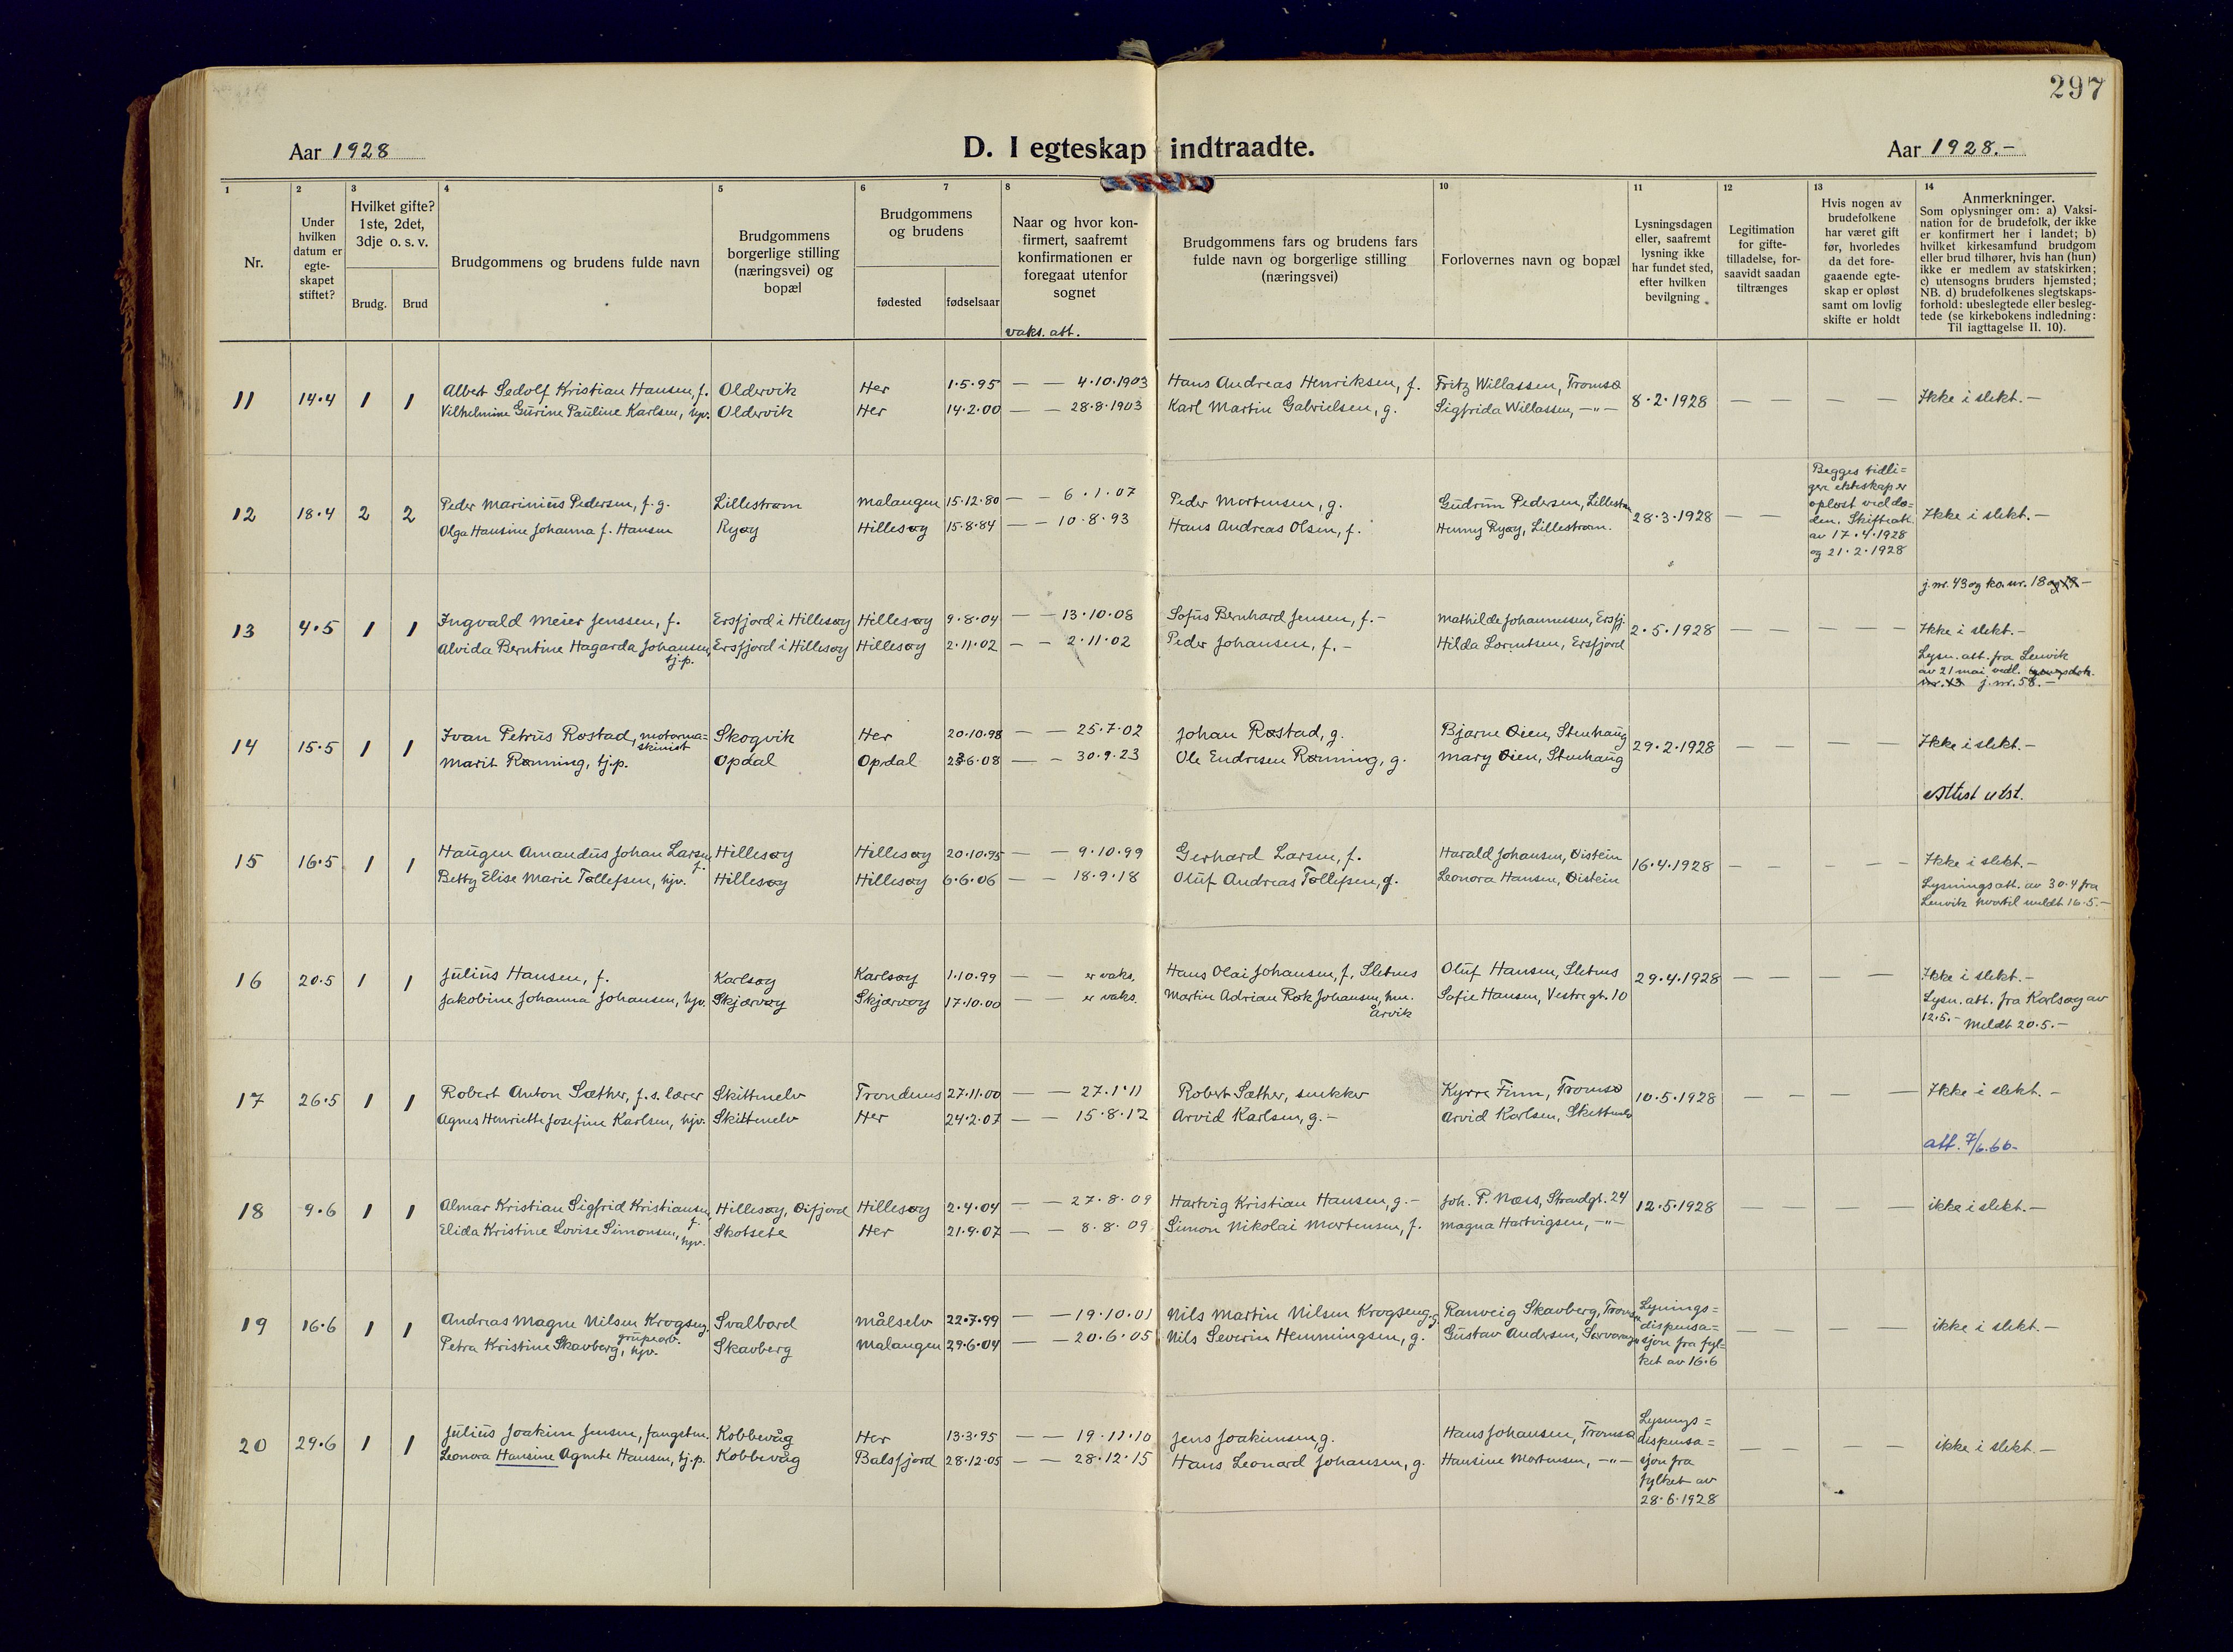 297
Aar 1928
D. I egteskap indtraadte.
Aar 1928.-
1 2 3 4 5 6 7 8 10 11 12 13 14
Nr.
Under hvilken datum er egte-skapet stiftet?
Hvilket gifte? 1ste, 2det, 3dje o. s. v.
Brudg. Brud
Brudgommens og brudens fulde navn
Brudgommens borgerlige stilling (næringsvei) og bopæl
Brudgommens og brudens
fødested fødselsaar
Naar og hvor kon-firmert, saafremt konfirmationen er foregaat utenfor sognet
vaks. att.
Brudgommens fars og brudens fars fulde navn og borgerlige stilling (næringsvei)
Forlovernes navn og bopæl
Lysningsdagen eller, saafremt lysning ikke har fundet sted, efter hvilken bevilgning
Legitimation for gifte-tilladelse, for-saavidt saadan tiltrænges
Hvis nogen av brudefolkene har været gift før, hvorledes da det fore-gaaende egte-skap er opløst samt om lovlig skifte er holdt
Anmerkninger.
Som oplysninger om: a) Vaksi-nation for de brudefolk, der ikke er konfirmert her i landet; b) hvilket kirkesamfund brudgom eller brud tilhører, hvis han (hun) ikke er medlem av statskirken; c) utensogns bruders hjemsted; NB. d) brudefolkenes slegtskaps-forhold: ubeslegtede eller besleg-tede (se kirkebokens indledning: Til iagttagelse II. 10).
11 14.4 1 1 Albert Sedolf Kristian Hansen, f. Oldervik Her 1.5.95 — — 4.10.1903 Hans Andreas Henriksen, f. Fritz Willassen, Tromsø 8.2.1928 — — — — Ikke i slekt.—
Vilhelmine Gurine Pauline Karlsen, hjv. Oldervik Her 14.2.00 — — 28.8.1903 Karl Martin Gabrielsen, g. Sigfrida Willassen, —"—
12 18.4 2 2 Peder Marinius Pedersen, f. g. Lillestrøm Malangen 15.12.80 — — 6.1.07 Peder Mortensen, g. Gudrun Pedersen, Lillestrøm 28.3.1928 — — Begges tidli=
gere ekteskap er
opløst ved dø-
den. Skifteatt.
av 17.4.1928
og 21.2.1928
Ikke i slekt.—
Olga Hansine Johanna f. Hansen Ryøy Hillesøy 15.8.84 — — 10.8.93 Hans Andreas Olsen, f. Henny Ryøy, Lillestrøm.
j.nr. 43 og ko.nr. 18 og 19 —
13 4.5 1 1 Ingvald Meier Jenssen, f. Ersfjord i Hillesøy Hillesøy 9.8.04 — — 13.10.08 Sofus Bernhard Jensen, f.- Mathilde Johannessen, Ersfj. 2.5.1928 — — — — Ikke i slekt.-
Alvida Berntine Hagarda Johansen, tj.p. Ersfjord i Hillesøy Hillesøy 2.11.02 — — 2.11.02 Peder Johansen, f.- Hilda Lorentsen, Ersfjord
Lysn. att. fra Lenvik
av 21 mai vedl.
j.nr. 58.—
14 15.5 1 1 Ivan Petrus Røstad, motorma=
skinist Skogvik Her 20.10.98 — — 25.7.02 Johan Røstad, g. Bjarne Øien, Stenhaug 29.2.1928 — — — — Ikke i slekt.—
Marit Rønning, tj.p. Opdal Opdal 23.6.08 — — 30.9.23 Ole Endresen Rønning, g. Mary Øien, Stenhaug
Attest utst.
15 16.5 1 1 Haugen Amandus Johan Larsen f. Hillesøy Hillesøy 20.10.95 — — 9.10.99 Gerhard Larsen, f. Harald Johansen, Øistein 16.4.1928 — — — — Ikke i slekt.—
Betty Elise Marie Tollefsen, hjv. Hillesøy Hillesøy 6.6.06 — — 18.9.18 Oluf Andreas Tollefsen, g. Leonora Hansen, Øistein
Lysningsatt. av 30.4 fra
Lenvik hvortil meldt 16.5.—
16 20.5 1 1 Julius Hansen, f. Karlsøy Karlsøy 1.10.99 — — er vaks. Hans Olai Johansen, f, Sletnes Oluf Hansen, Sletnes 29.4.1928 — — — — Ikke i slekt.—
Jakobine Johanna Johansen, hjv. Skjærvøy Skjærvøy 17.10.00 — — er vaks. Martin Adrian Røk Johansen, hm. Årvik Sofie Hansen, Vestregt. 10
Lysn. att. fra Karlsøy av
12.5.- Meldt 20.5.—
17 26.5 1 1 Robert Anton Sæther, f.s. lærer Skittenelv Trondenes 27.11.00 — 27.1.11 Robert Sæther, snekker Kyrre Finn, Tromsø 10.5.1928 — — — — Ikke i slekt. —
Agnes Henriette Josefine Karlsen, hjv. Skittenelv Her 24.2.07 — — 15.8.12 Arvid Karlsen, g.- Arvid Karlsen, Skittenelv
att. 7/6.66-
18 9.6 1 1 Almar Kristian Sigfrid Kristiansen, f. Hillesøy, Øifjord Hillesøy 2.4.04 — — 27.8.09 Hartvig Kristian Hansen, g.- Joh. P. Næss, Strandgt. 24 12.5.1928 — — — — ikke i slekt.—
Elida Kristine Lovise Simonsen, hjv. Skotsete Her 21.9.07 — — 8.8.09 Simon Nikolai Mortensen, f. Magna Hartvigsen, —"—
19 16.6 1 1 Andreas Magne Nilsen Krogseng, grubearb. Svalbard Målselv 22.7.99 — — 19.10.01 Nils Martin Nilsen Krogseng, g. Ranveig Skavberg, Tromsø Lysnings=
dispensa=
sjon fra fyl=
ket av 16.6
— — — — ikke i slekt.—
Petra Kristine Skavberg, hjv. Skavberg Malangen 29.6.04 — — 20.6.05 Nils Severin Henningsen, g. Gustav Andersen,
20 29.6 1 1 Julius Joakim Jensen, fangstm. Kobbevåg Her 13.3.95 — — 19.11.10 Jens Joakimsen, g. Hans Johansen, Tromsø Lysnings=
dispensa=
sjon fra
fylket av
28.6.1928
— — — — ikke i slekt.—
Leonora Hansine Agnete Hansen, tj.p. Kobbevåg Balsfjord 28.12.05 — — 28.12.15 Hans Leonard Johansen, g. Hansine Mortensen, —"—